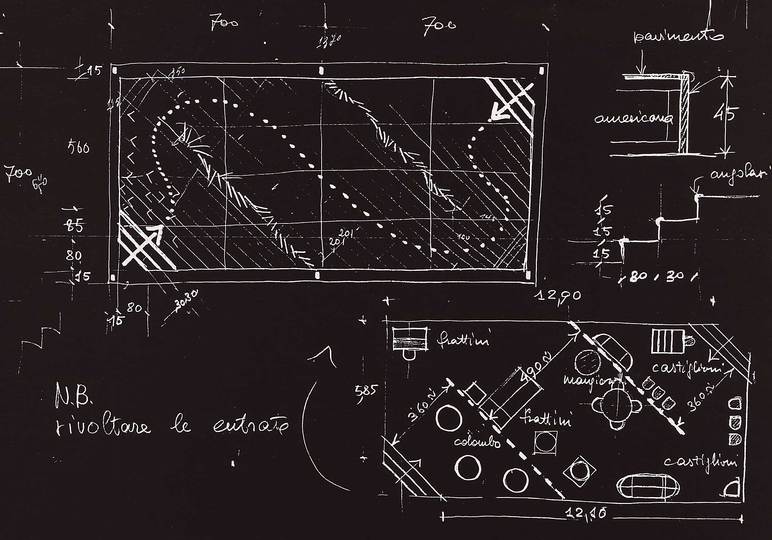 700
700
1370
pavimento
15
150
15
americana
45
560
700
angolari
85
15
15
15
201
201
80
15
80 30
12,90
15
80
3080
frattini
castiglioni
490
mangiarotti
585
360
360
N.B.
rivoltare le entrate
frattini
colombo
castiglioni
12,10